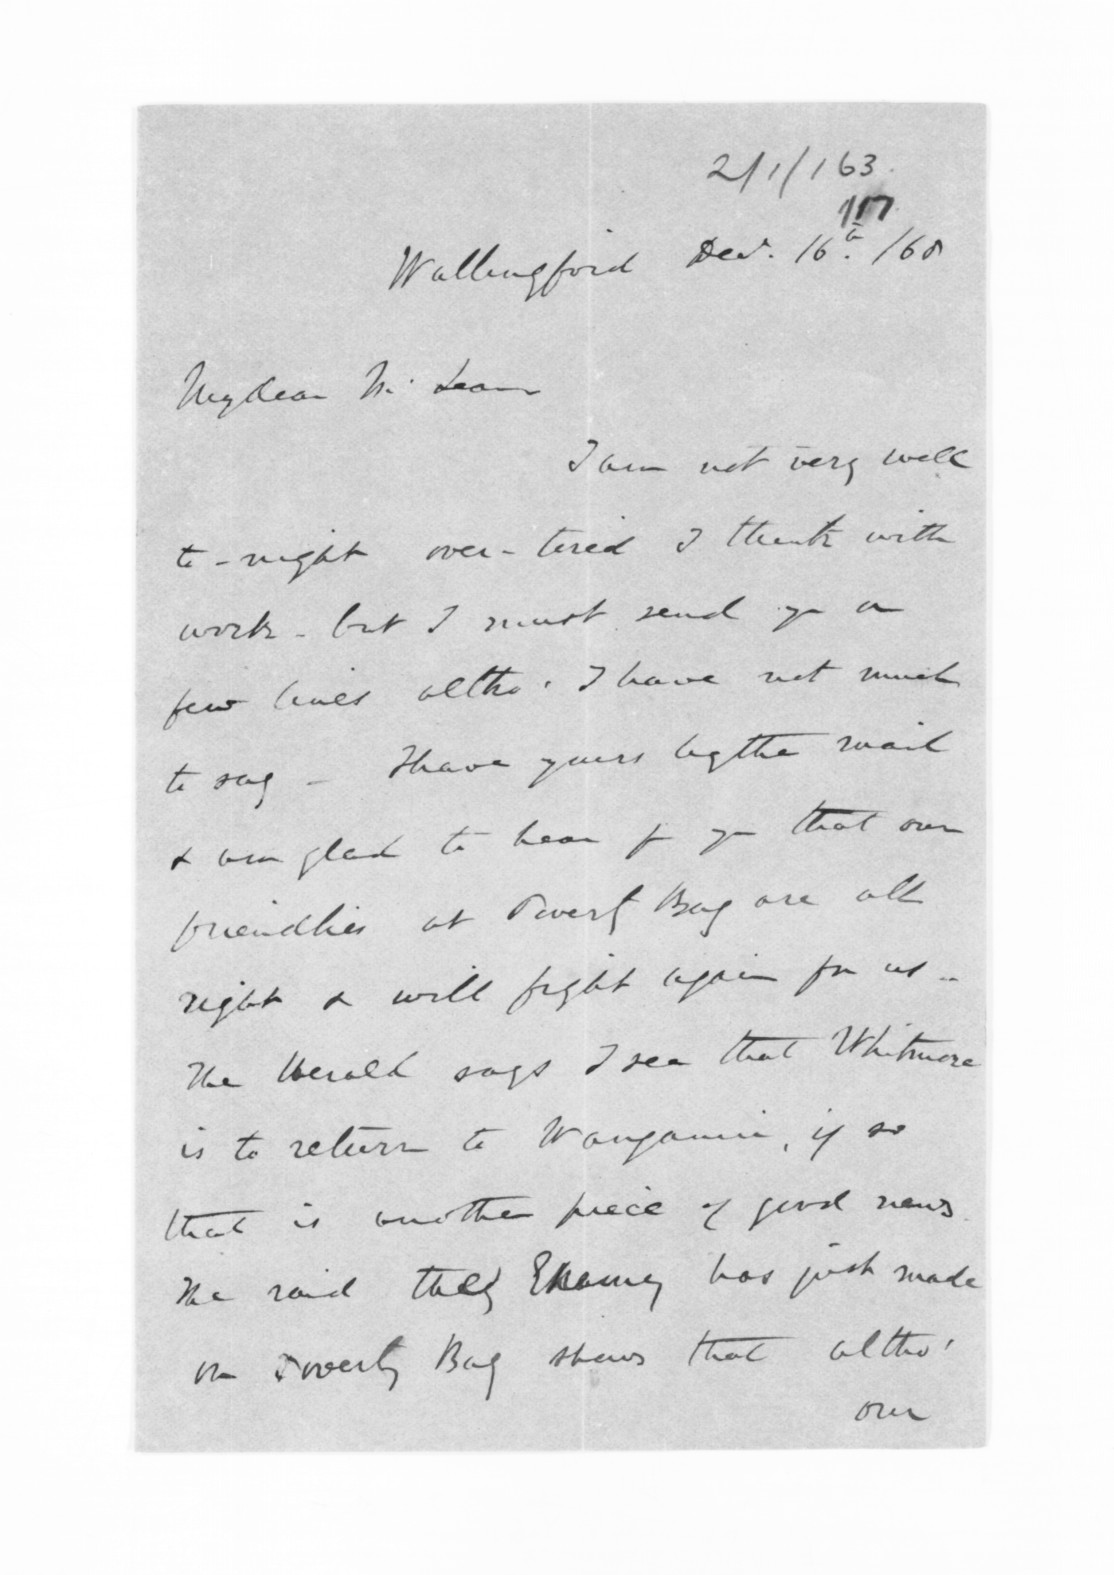 2/1/163.
117
Wallingford Decr. 16th. /68
My dear McLean
I am not very well
to-night over-tired I think with
work - but I must send you a
few lines altho'. I have not much
to say - I have yours by the mail
& am glad to hear fr you that our
friendlies at Poverty Bay are all
right & will fight again for us -
The Herald says I see that Whitmore
is to return to Wanganui, if so
that is another piece of good news.
The raid they Enemy has just made
on Poverty Bay shews that altho'
our